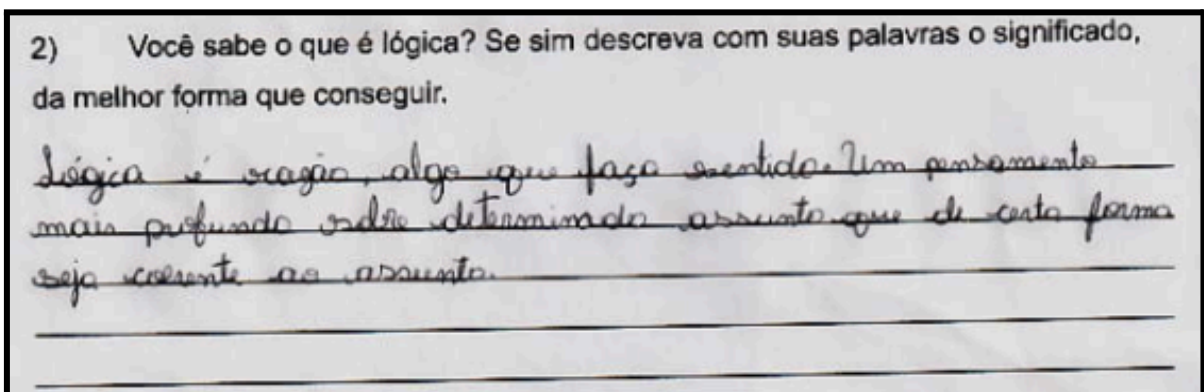 2) Você sabe o que é lógica? Se sim descreva com suas palavras o significado,
da melhor forma que conseguir.
Lógica é razão, algo que faça sentido. Um pensamento
mais profundo sobre determinado assunto que de certa forma
seja coerente ao assunto.